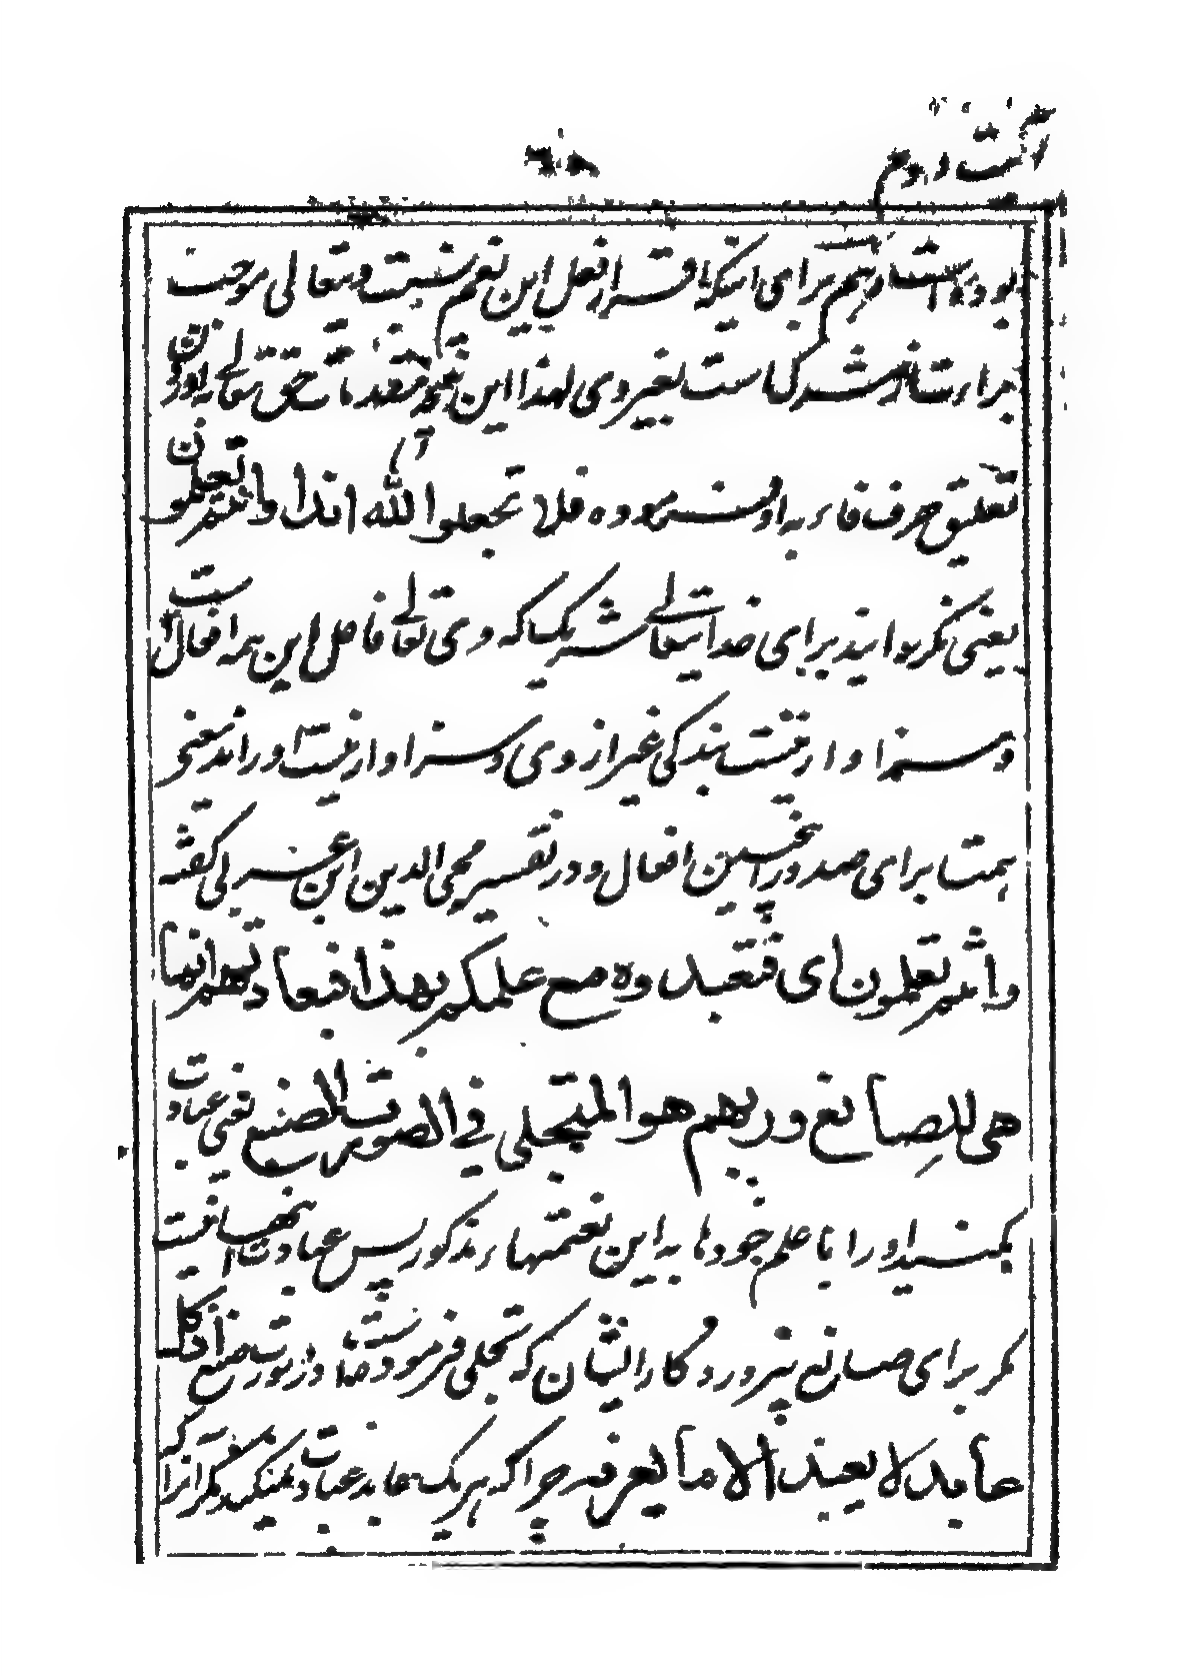 آیت دوم
بوده است از هم برای اینکه اقرار فعل این نعم نسبت ویتعالی موجب
براءت از شرک است بغیر وی لهذا این نتیجه مقدمات حق تعالی آورده
تعلیق حرف فاء به او فرموده فلا تجعلوا لله اندادا وانتم تعلمون
یعنی نگردانید برای خدایتعالی شریکیا که وی تعالی فاعل این همه افعال است
و سزاوار نیست بندگی غیر از وی و سزاوار نیست ورا ند یعنی
همتا برای صدور اینچنین افعال و در تفسیر محی الدین ابن عربی گفته
وانتم تعلمون ای فتعبدوه مع علمکم بهذا فعبادتهم انما
هی للصانع وربهم هو المتجلی فی الصورت الصنیع یعنی عبادت
بکنید او را با علم خود ها به این نعمتهاء مذکور پس عبادت اینها نیست
مگر برای صانع پروردگار ایشان که تجلی فرموده است در صورت صنع
عابد لا یعبد الا ما یعرفه چرا که هر یک عابد عبادت نمیکند مگر آنرا که